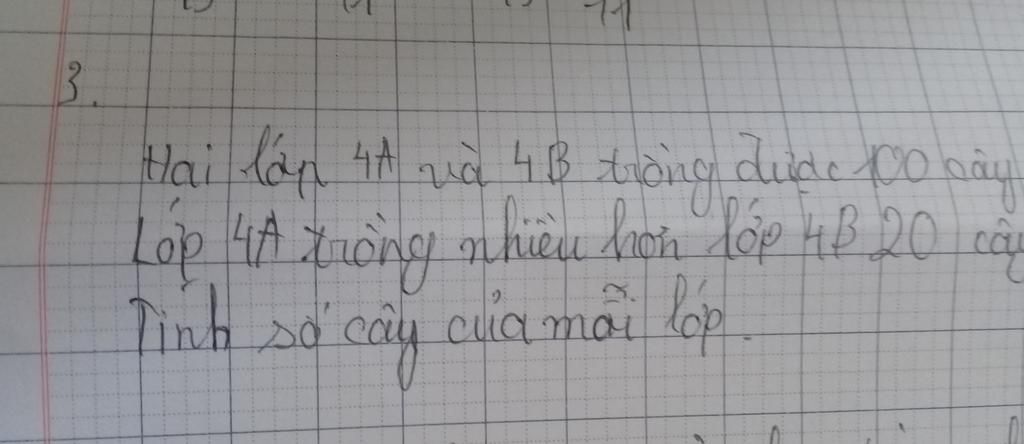 3.
Hai lớp 4A và 4B trồng được 100 cây
Lớp 4A trồng nhiều hơn lớp 4B 20 cây
Tính số cây của mỗi lớp.